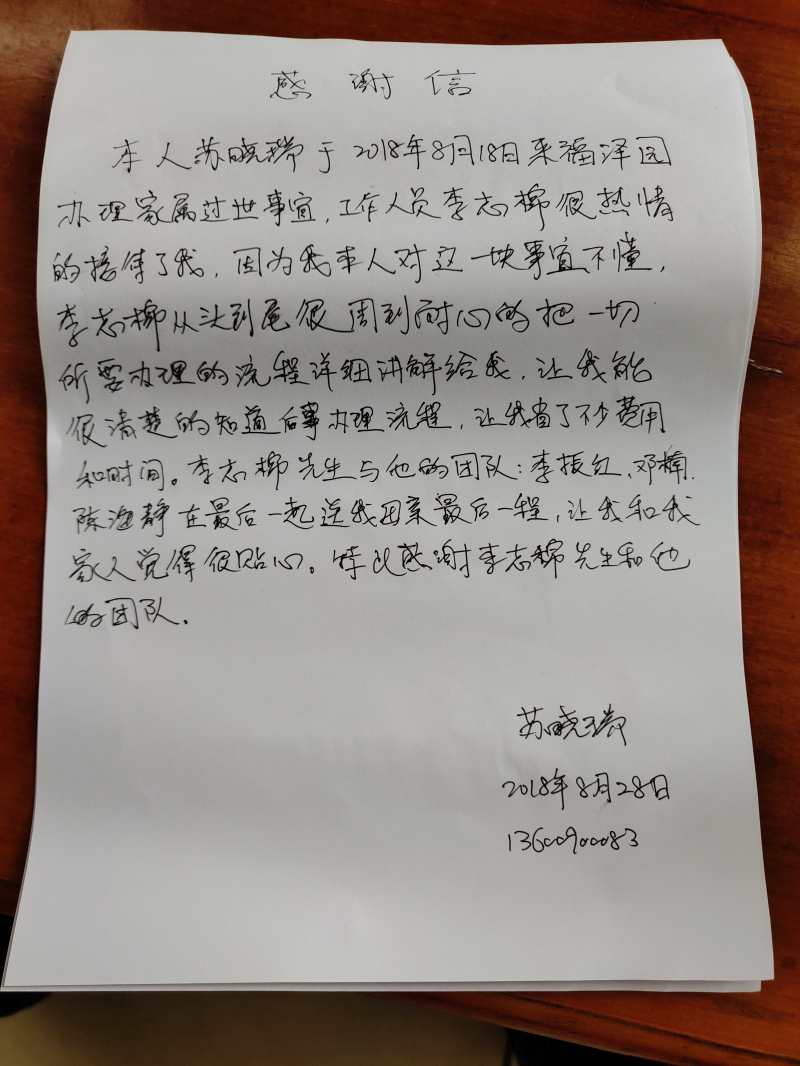 感谢信
本人苏晓瑞于2018年8月18日来福泽园
办理家属过世事宜，工作人员李志柳很热情
的接待了我，因为我本人对这一块事宜不懂，
李志柳从头到尾很周到耐心的把一切
所要办理的流程详细讲解给我，让我能
很清楚的知道后事办理流程，让我省了不少费用
和时间。李志柳先生与他的团队：李振红、邓楠、
陈海静在最后一起送我母亲最后一程，让我和我
家人觉得很贴心。特此感谢李志柳先生和他
的团队.
苏晓瑞
2018年8月28日
13600900083